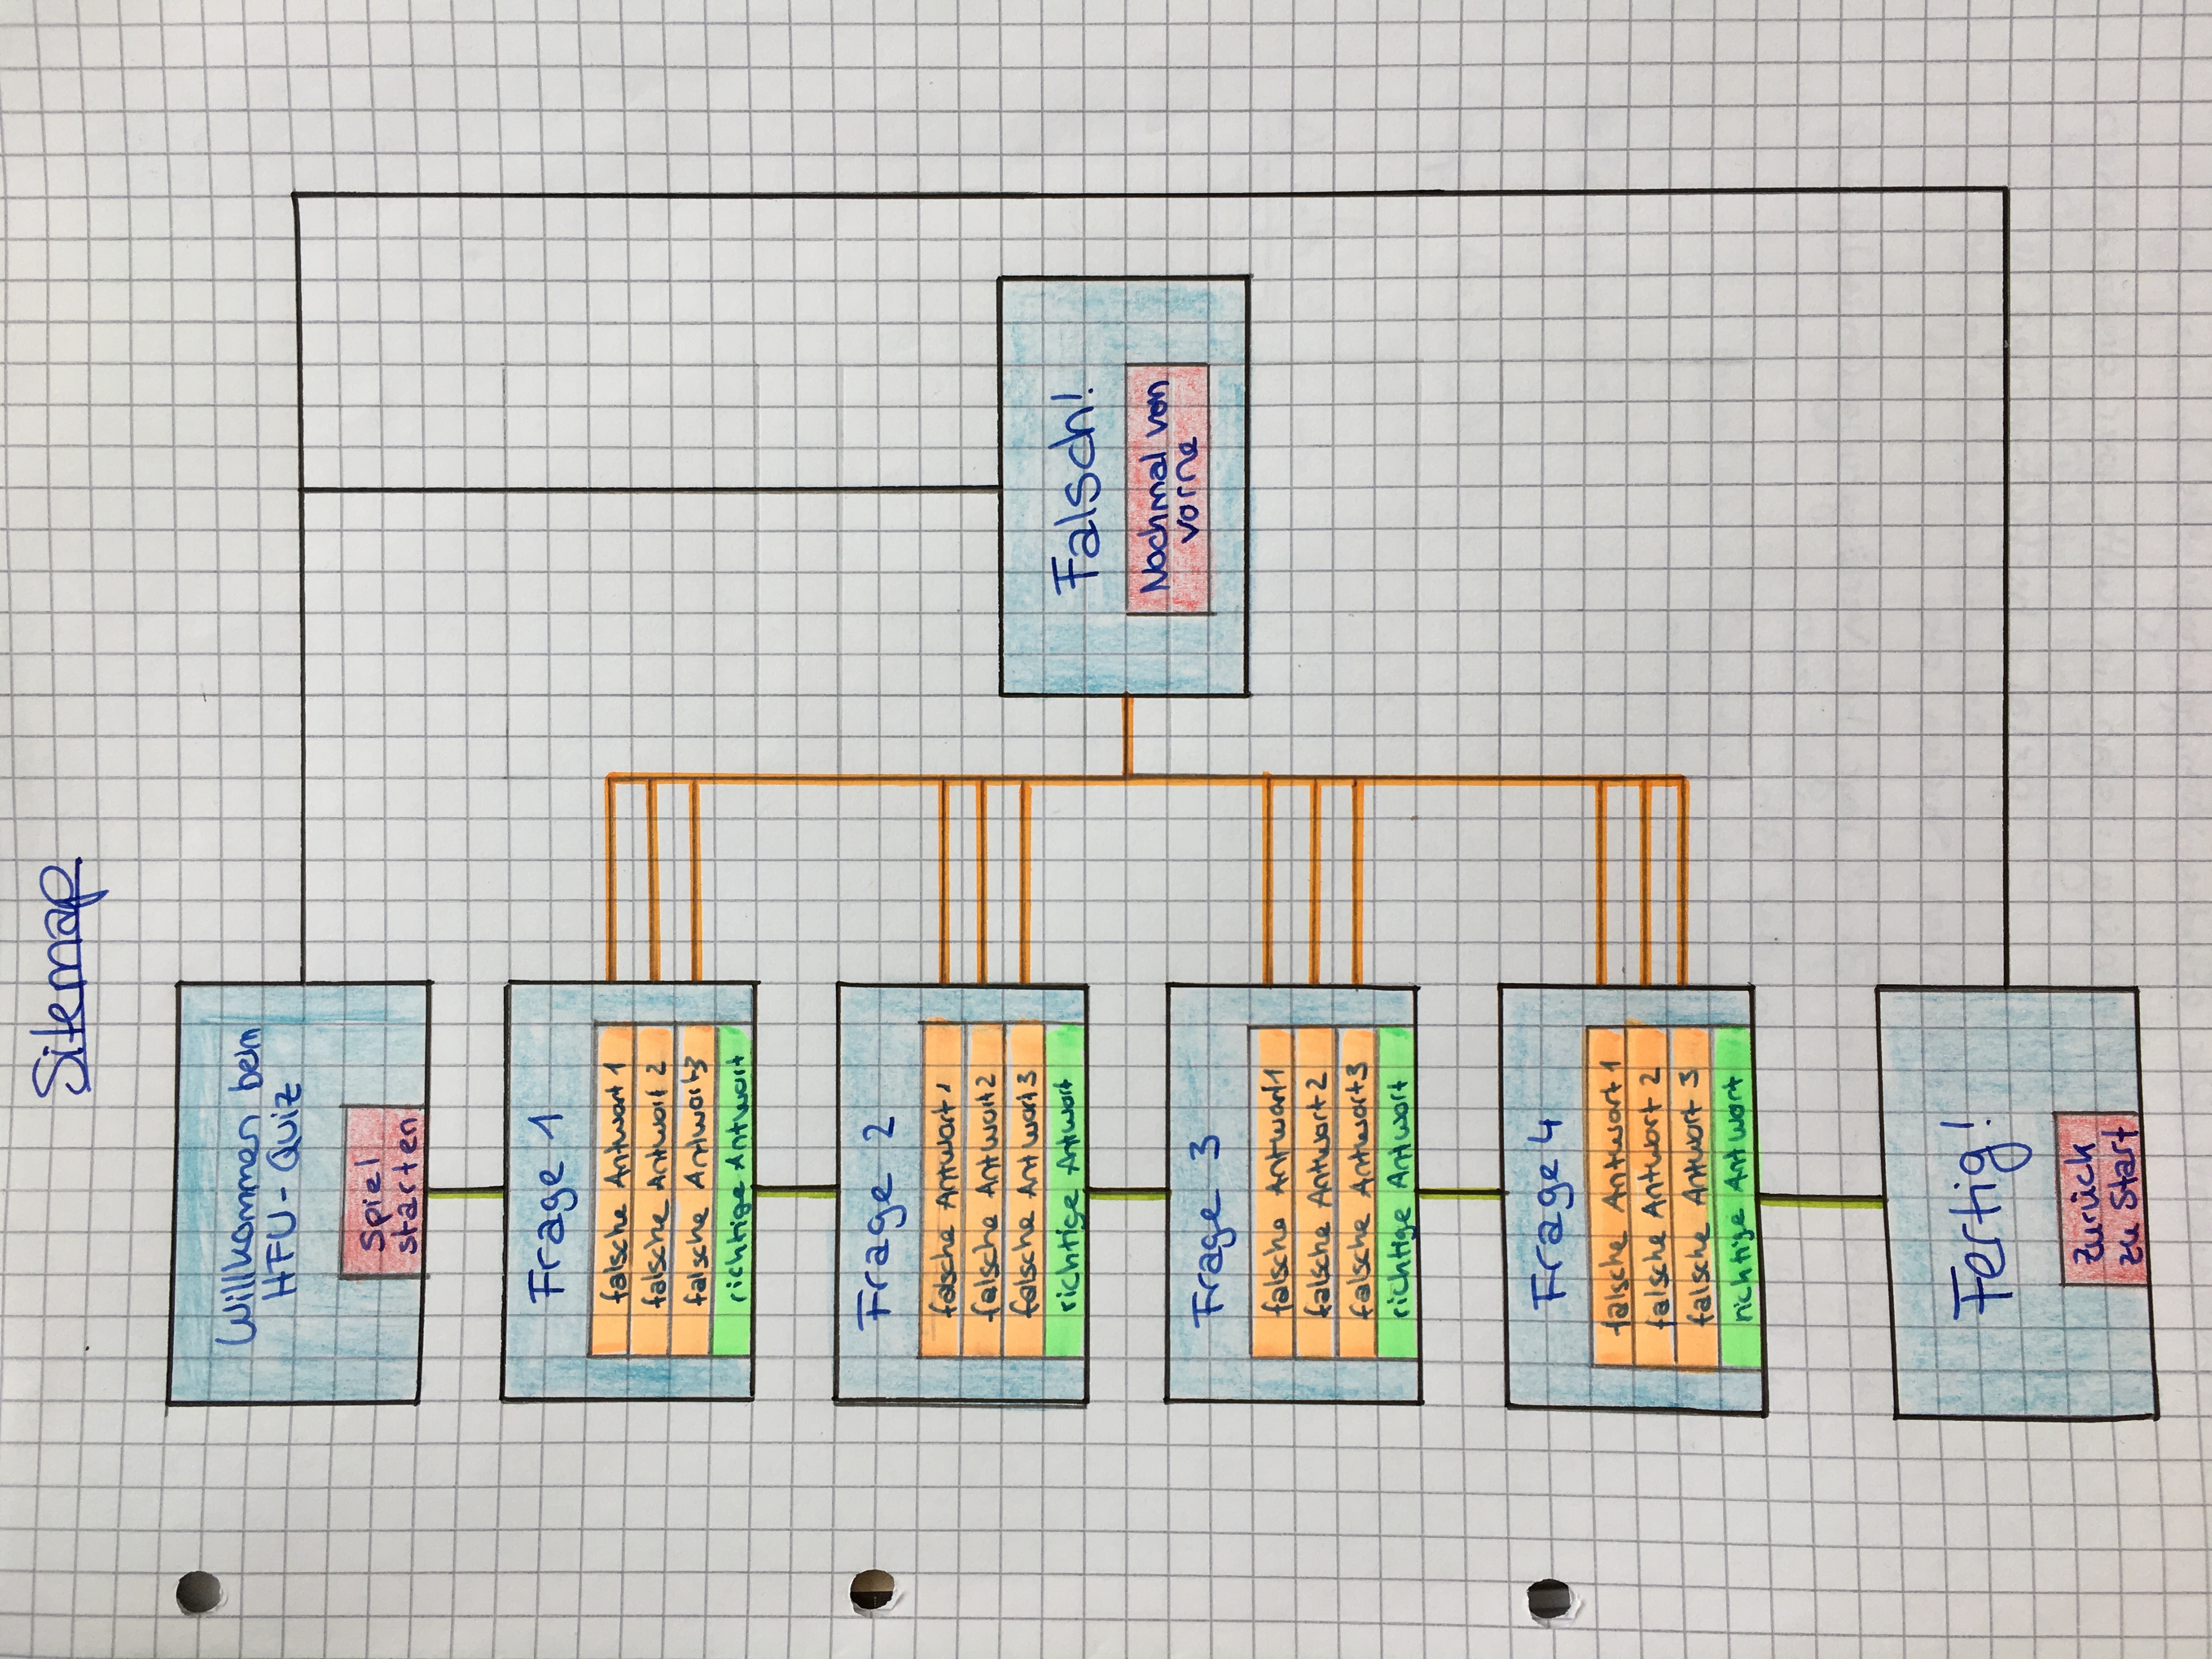 Sitemap
Willkommen beim
HFU - Quiz
Spiel
starten
Frage 1
falsche Antwort 1
falsche Antwort 2
falsche Antwort 3
richtige Antwort
Frage 2
falsche Antwort 1
falsche Antwort 2
falsche Antwort 3
richtige Antwort
Falsch!
Nochmal von
vorne
Frage 3
falsche Antwort 1
falsche Antwort 2
falsche Antwort 3
richtige Antwort
Frage 4
falsche Antwort 1
falsche Antwort 2
falsche Antwort 3
richtige Antwort
Fertig!
Zurück
zu Start